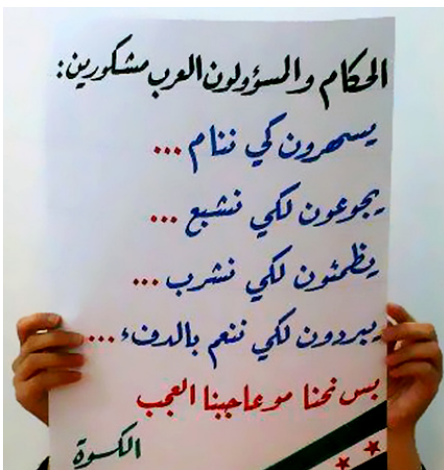 الحكام والمسؤولون العرب مشكورين:
يسهرون كي ننام ...
يجوعون لكي نشبع ...
يظمئون لكي نشرب ...
يبردون لكي ننعم بالدفء ....
بس نحنا مو عاجبنا العجب
الكسوة